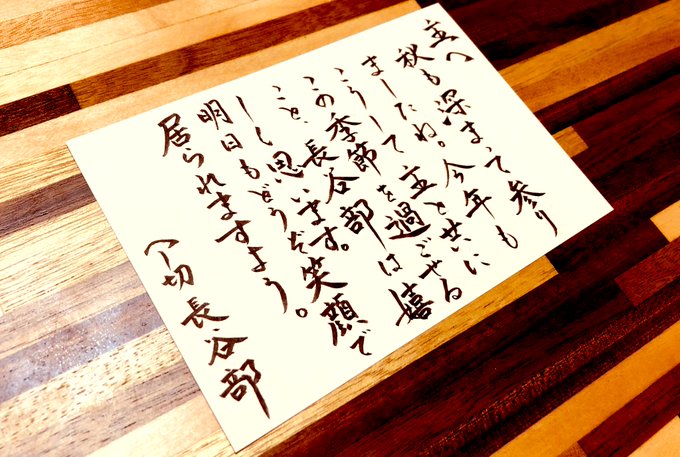 主へ
秋も深まって参り
ましたね。今年も
こうして主と共に
この季節を過ごせる
こと、長谷部は嬉
しく思います。
明日もどうぞ笑顔で
居られますよう。
へし切長谷部